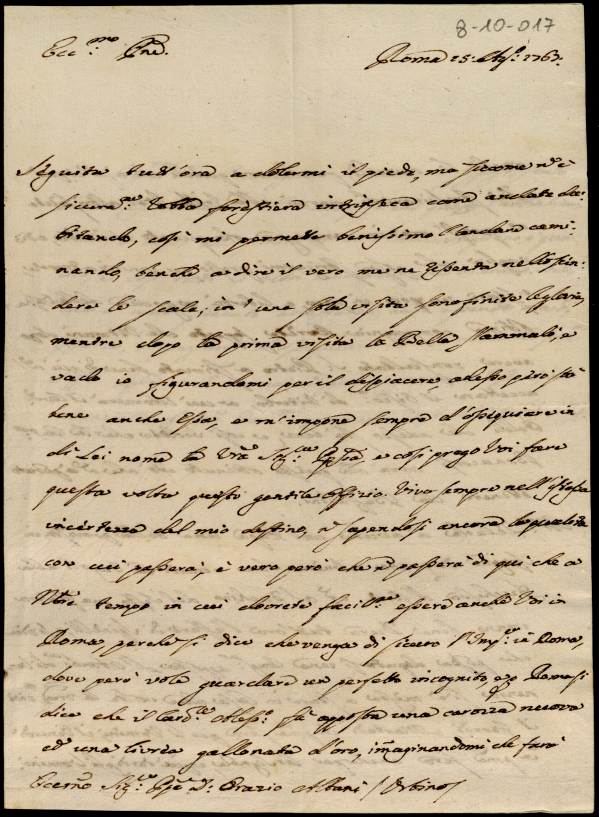 8-10-017
Ecc.mo Pñe.
Roma 25. Ag.o 1763.
Seguita tutt'ora a dolermi il piede, ma siccome n̄ è
sicura.te gotta forestiera intrinseca come andate du-
bitando, così mi permette benissimo l'andare cami-
nando, benche a dire il vero me ne risenta nello scen-
dere le scale; in una sola visita sono finite le glorie,
mentre dopo la prima visita la Bella s'ammalò, e
vado io figurandomi per il dispiacere, adesso però stà
bene anche Essa, e m'impone sempre d'ossequiare in
di Lei nome la Vr̄a Sig.ra Pp̄ssa e così prego Voi fare
questa volta questo gentile offizio. Vivo sempre nell'istessa
incertezza del mio destino, n̄ sapendosi ancora la qualità
con cui passerà, è vero però che n̄ passerà di qui che a
9bre tempo in cui dovrete facil.te essere anche Voi in
Roma perche si dice che venga di sicuro l'Imp.re in Roma,
dove però vole guardare un perfetto incognito, e p. Roma si
dice che il Card.le Aless.o fà apposta una carozza nuova
ed una livrea gallonata d'oro, im̄aginandomi che farà
Ecc.mo Sig.re Pp̄e D. Orazio Albani / Urbino /